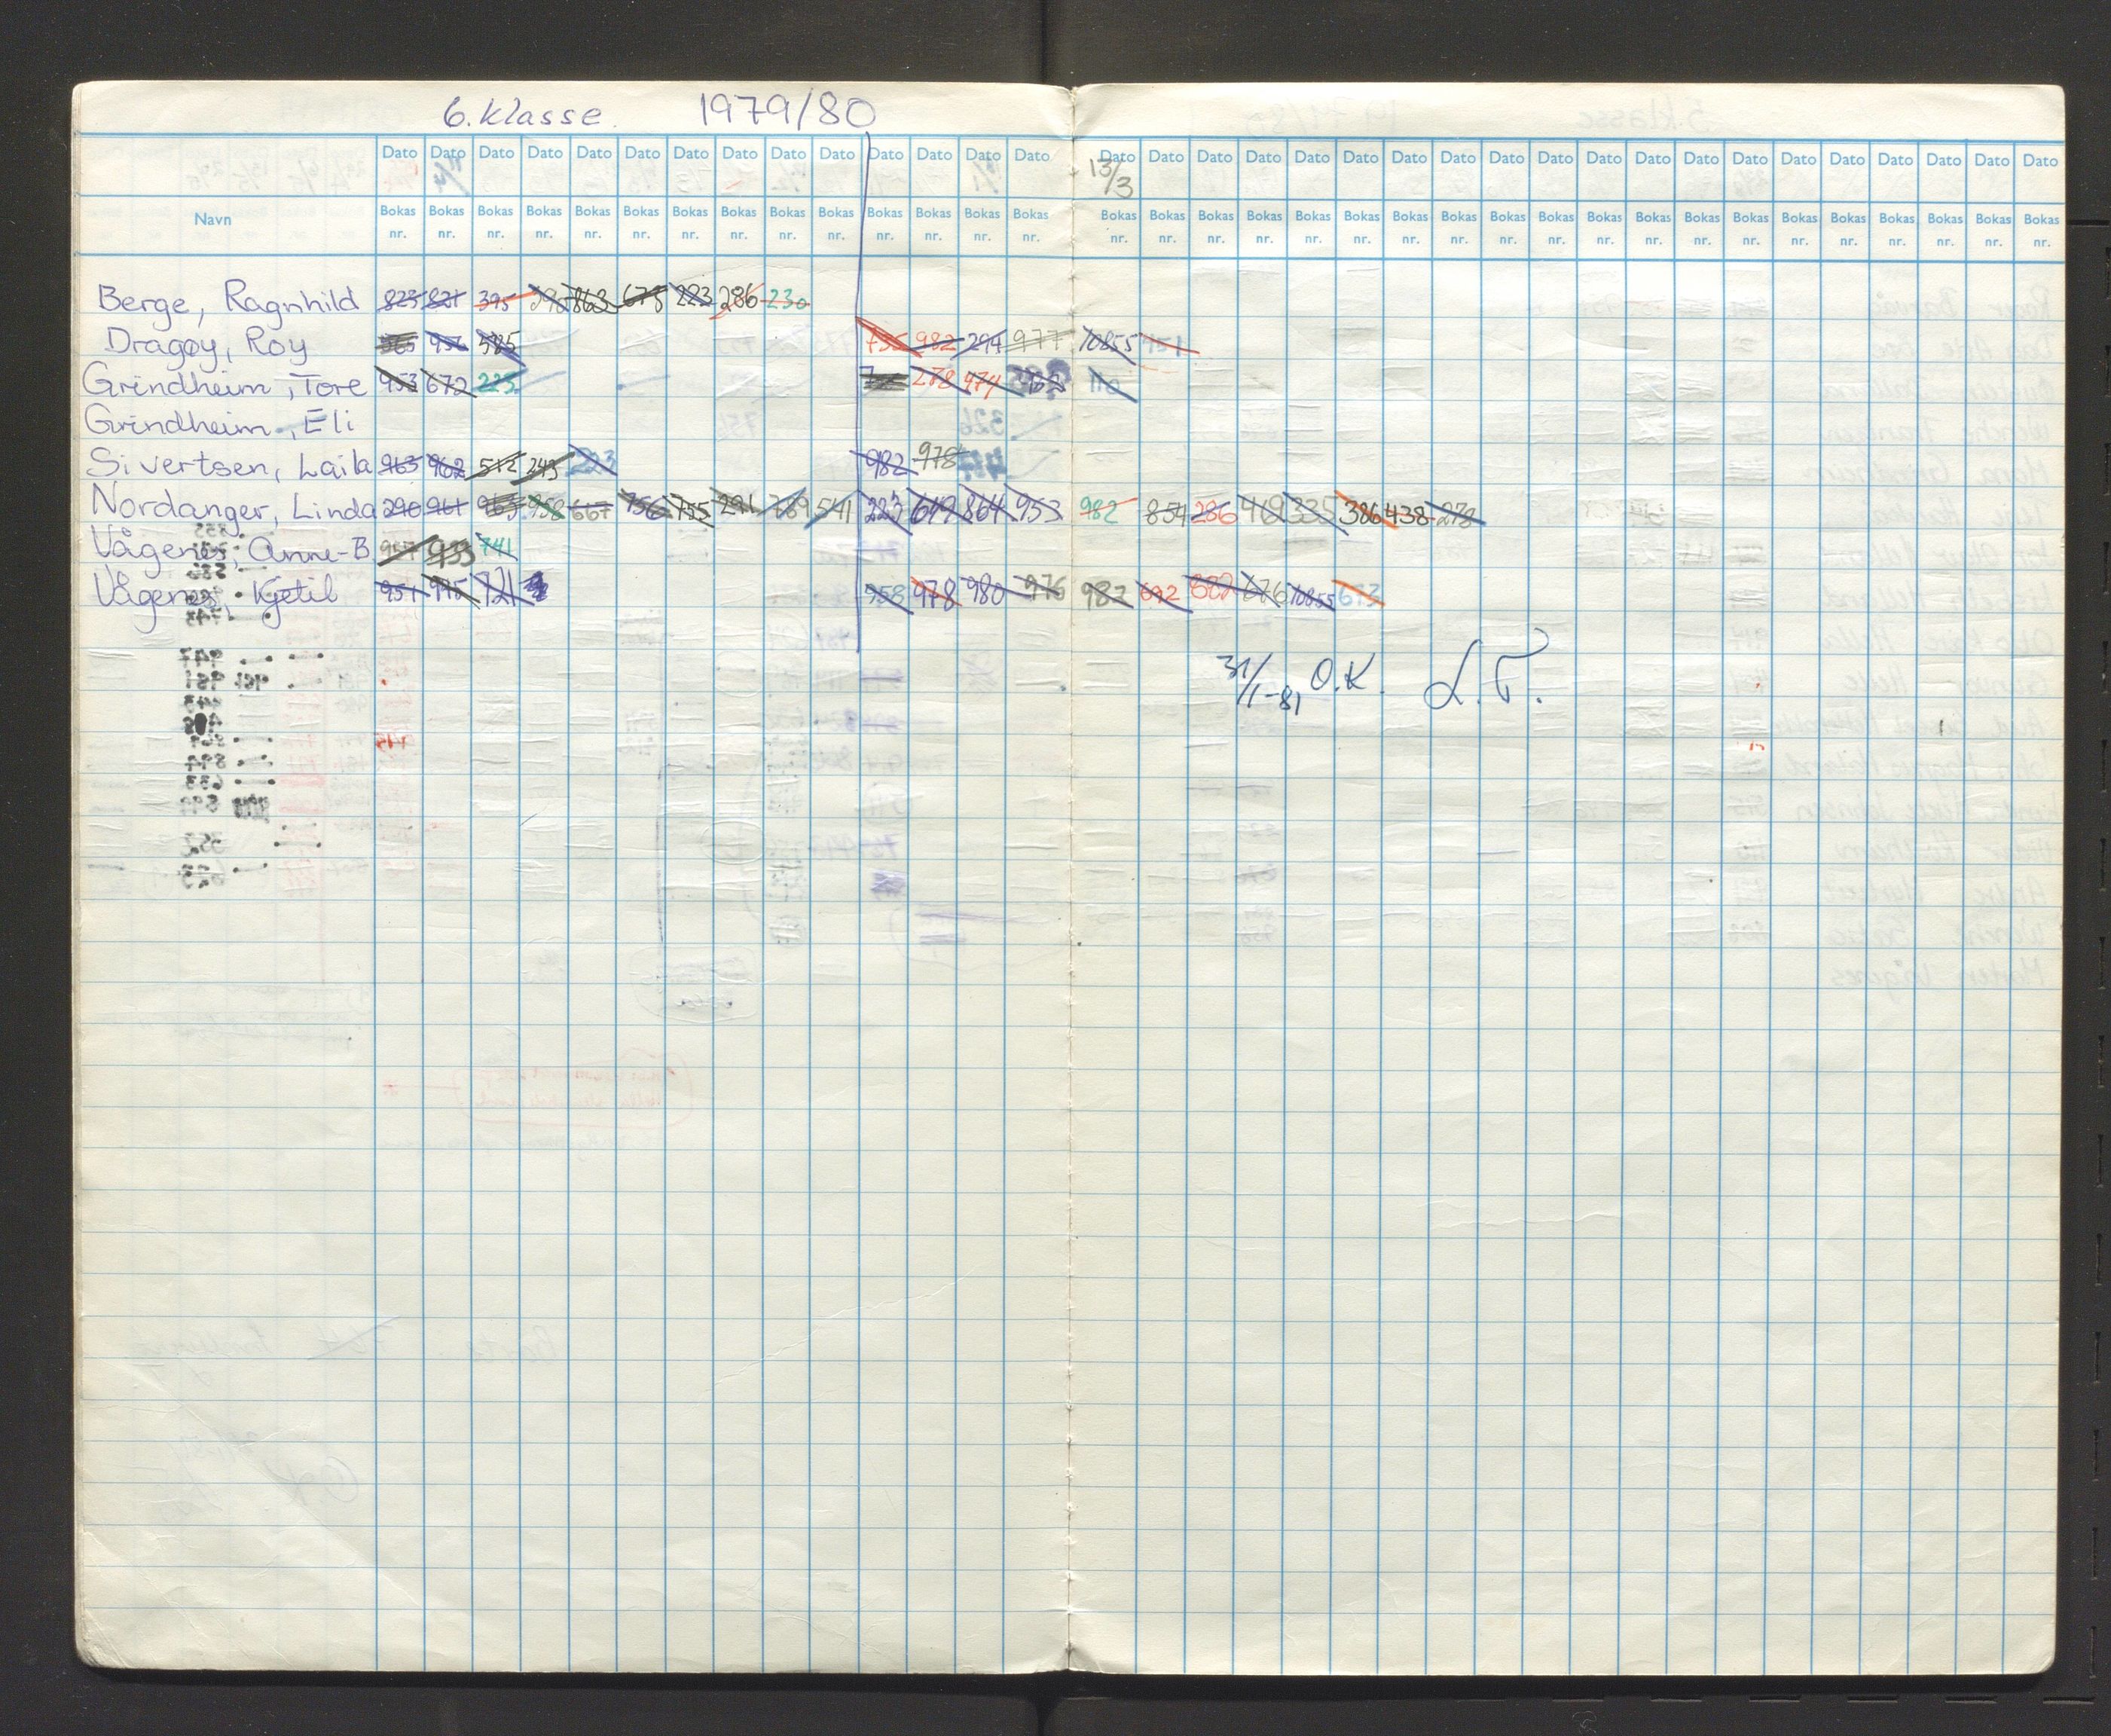 6. klasse. 1979/80
Dato Dato Dato Dato Dato Dato Dato Dato Dato Dato Dato Dato Dato Dato Dato Dato Dato Dato Dato Dato Dato Dato Dato Dato Dato Dato Dato Dato Dato Dato Dato Dato Dato Dato
13/3
Navn Bokas Bokas Bokas Bokas Bokas Bokas Bokas Bokas Bokas Bokas Bokas Bokas Bokas Bokas Bokas Bokas Bokas Bokas Bokas Bokas Bokas Bokas Bokas Bokas Bokas Bokas Bokas Bokas Bokas Bokas Bokas Bokas Bokas Bokas
nr. nr. nr. nr. nr. nr. nr. nr. nr. nr. nr. nr. nr. nr. nr. nr. nr. nr. nr. nr. nr. nr. nr. nr. nr. nr. nr. nr. nr. nr. nr. nr. nr. nr.
Berge, Ragnhild 823 821 395 863 678 223 286 230
Dragøy, Roy 956 585 982 294 977 10855
Grindheim, Tore 953 672 223 278 974 110
Grindheim, Eli
Sivertsen, Laila 963 962 512 243 223 982 978
Nordanger, Linda 290 961 963 958 667 756 755 291 789 541 223 649 864 953 982 854 286 469 335 386 438 278
Vågenes, Anne-B 953 741
Vågenes, Kjetil 951 975 721 958 978 980 976 982 692 882 676 10855 673
31/1-81, O.K. L.T.